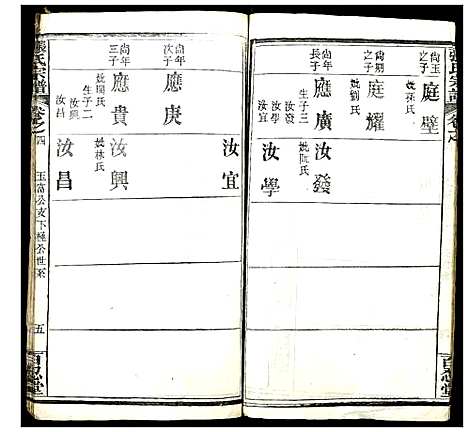 張氏宗譜
卷之
尚玉之子
庭璧
娶孫氏
尚朝之子
庭耀
娶劉氏
尚年長子
應廣
娶阮氏
生子三
汝發
汝學
汝宜
汝發
汝學
汝宜
百忍堂
尚年次子
應庚
尚年三子
應貴
娶閔氏
生子二
汝興
汝昌
汝興
娶林氏
汝昌
張氏宗譜
卷之四
玉富公支下
公世系
五
百忍堂